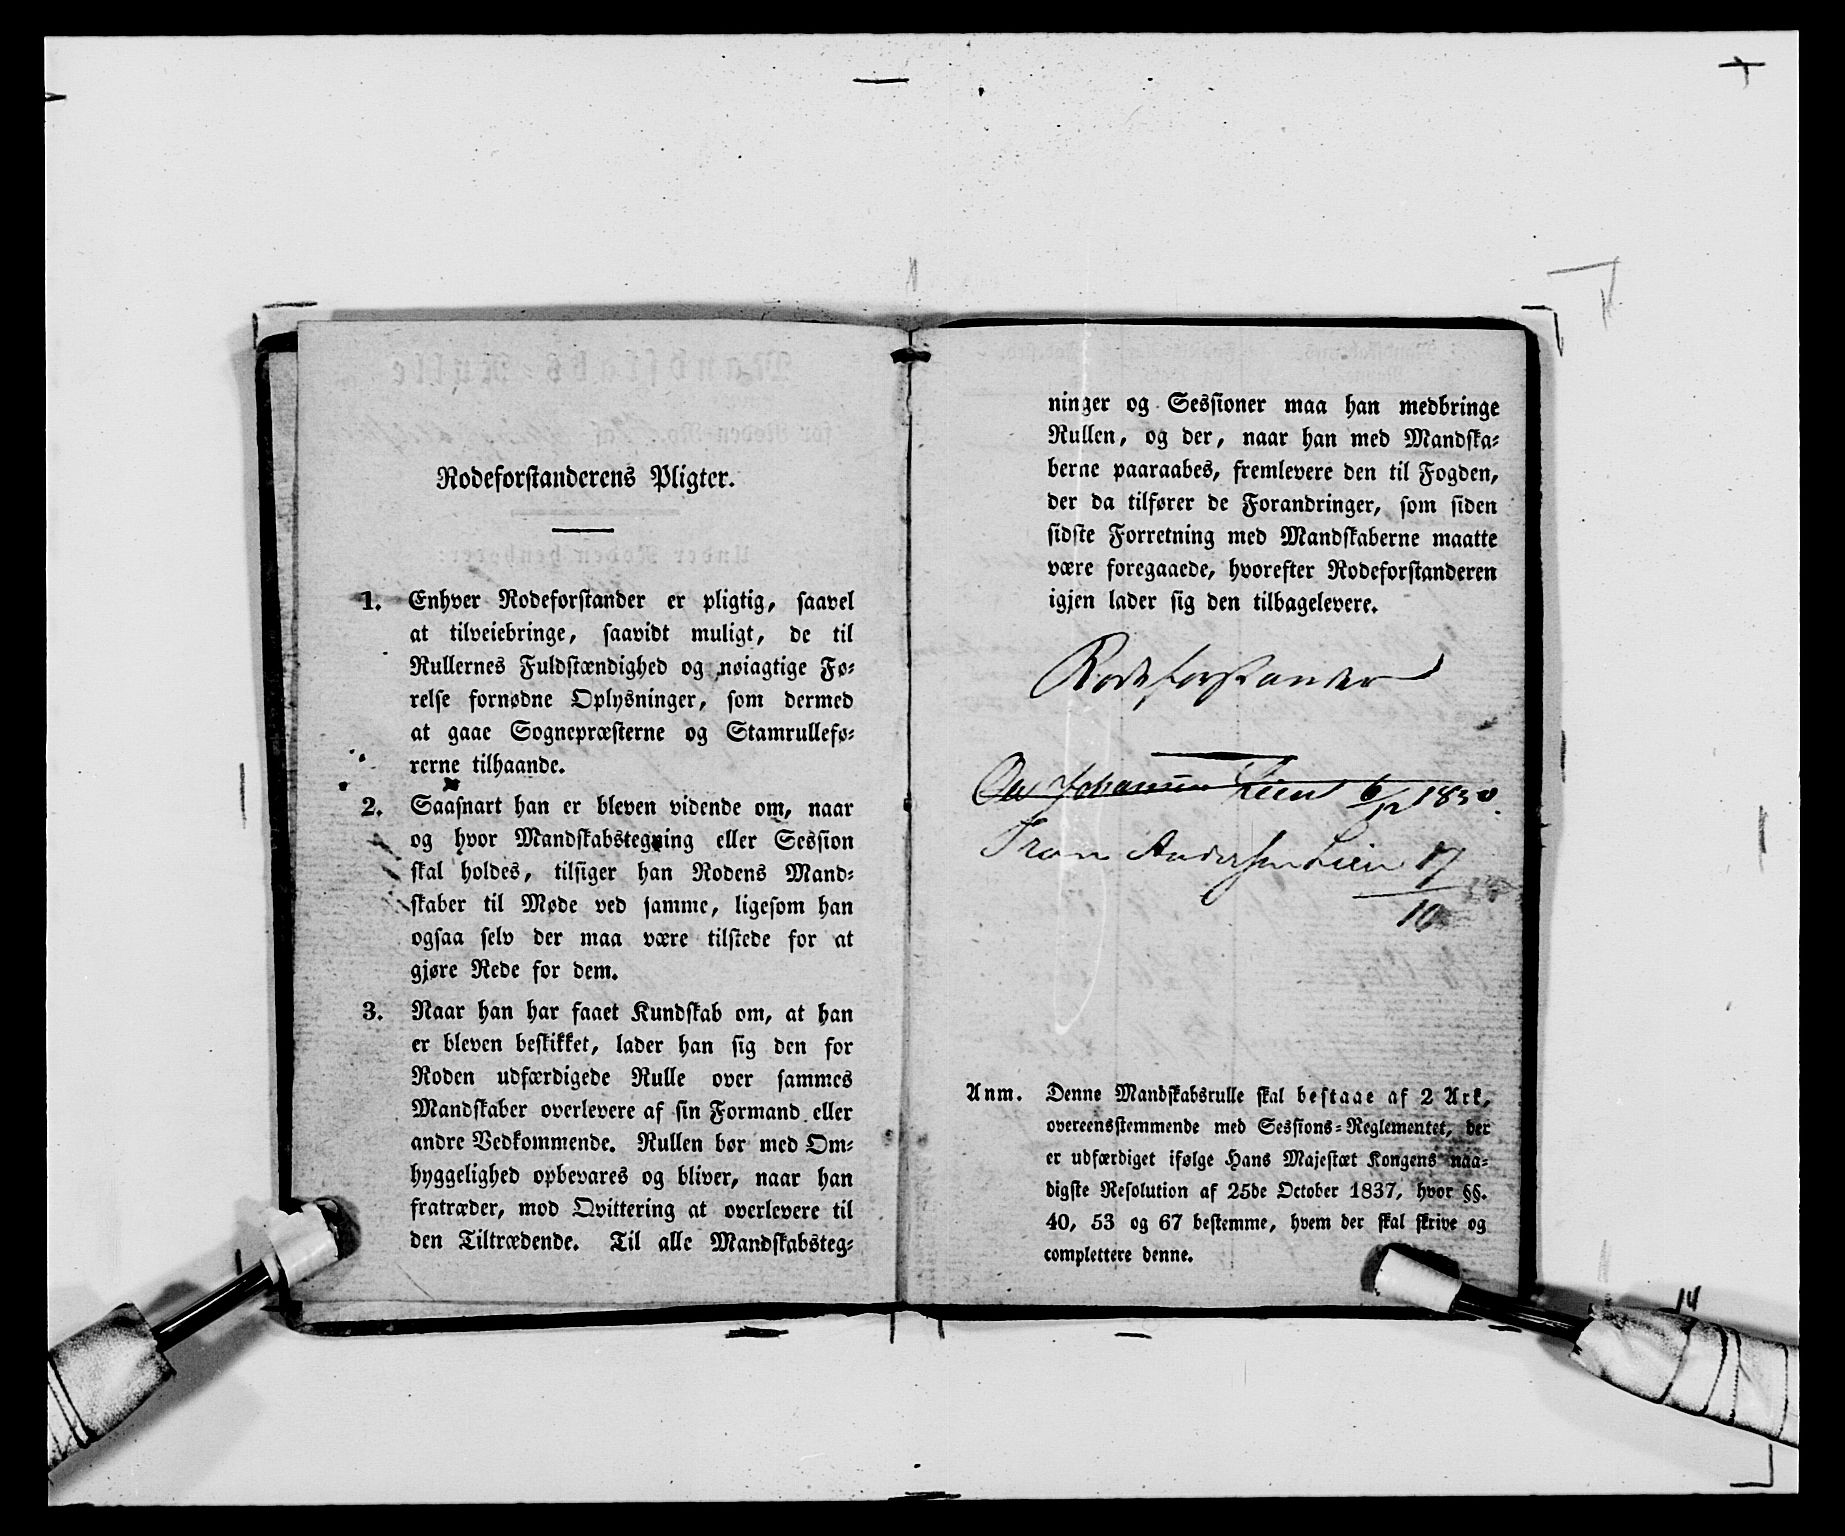 Rodeforstanderens Pligter.
1. Enhver Rodeforstander er pligtig, saavel
at tilveiebringe, saavidt muligt, de til
Rullernes Fuldstændighed og nøiagtige Fø-
relse fornødne Oplysninger, som dermed
at gaae Sognepræsterne og Stamrullefø-
rerne tilhaande.
2. Saasnart han er bleven vidende om, naar
og hvor Mandskabstegning eller Session
skal holdes, tilsiger han Rodens Mand-
skaber til Møde ved samme, ligesom han
ogsaa selv der maa være tilstede for at
gjøre Rede for dem.
3. Naar han har faaet Kundskab om, at han
er bleven beskikket, lader han sig den for
Roden udfærdigede Rulle over sammes
Mandskaber overlevere af sin Formand eller
andre Vedkommende. Rullen bør med Om-
hyggelighed opbevares og bliver, naar han
fratræder, mod Qvittering at overlevere til
den Tiltrædende. Til alle Mandskabsteg-
ninger og Sessioner maa han medbringe
Rullen, og der, naar han med Mandska-
berne paaraabes, fremlevere den til Fogden,
der da tilfører de Forandringer, som siden
sidste Forretning med Mandskaberne maatte
være foregaaede, hvorefter Rodeforstanderen
igjen lader sig den tilbagelevere.
Rodeforstander
Johansen Lien 6/12 1850.
Andersen Lien 17/10
Anm. Denne Mandskabsrulle skal bestaae af 2 Ark,
overeensstemmende med Sessions-Reglementet, der
er udfærdiget ifølge Hans Majestæt Kongens naa-
digste Resolution af 25de October 1837, hvor §§.
40, 53 og 67 bestemme, hvem der skal skrive og
complettere denne.
14